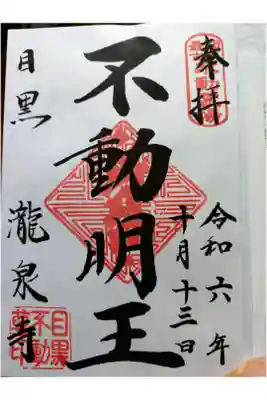 奉拝
令和六年
十月十三日
不動明王
目黒
瀧泉寺
目黒
不動